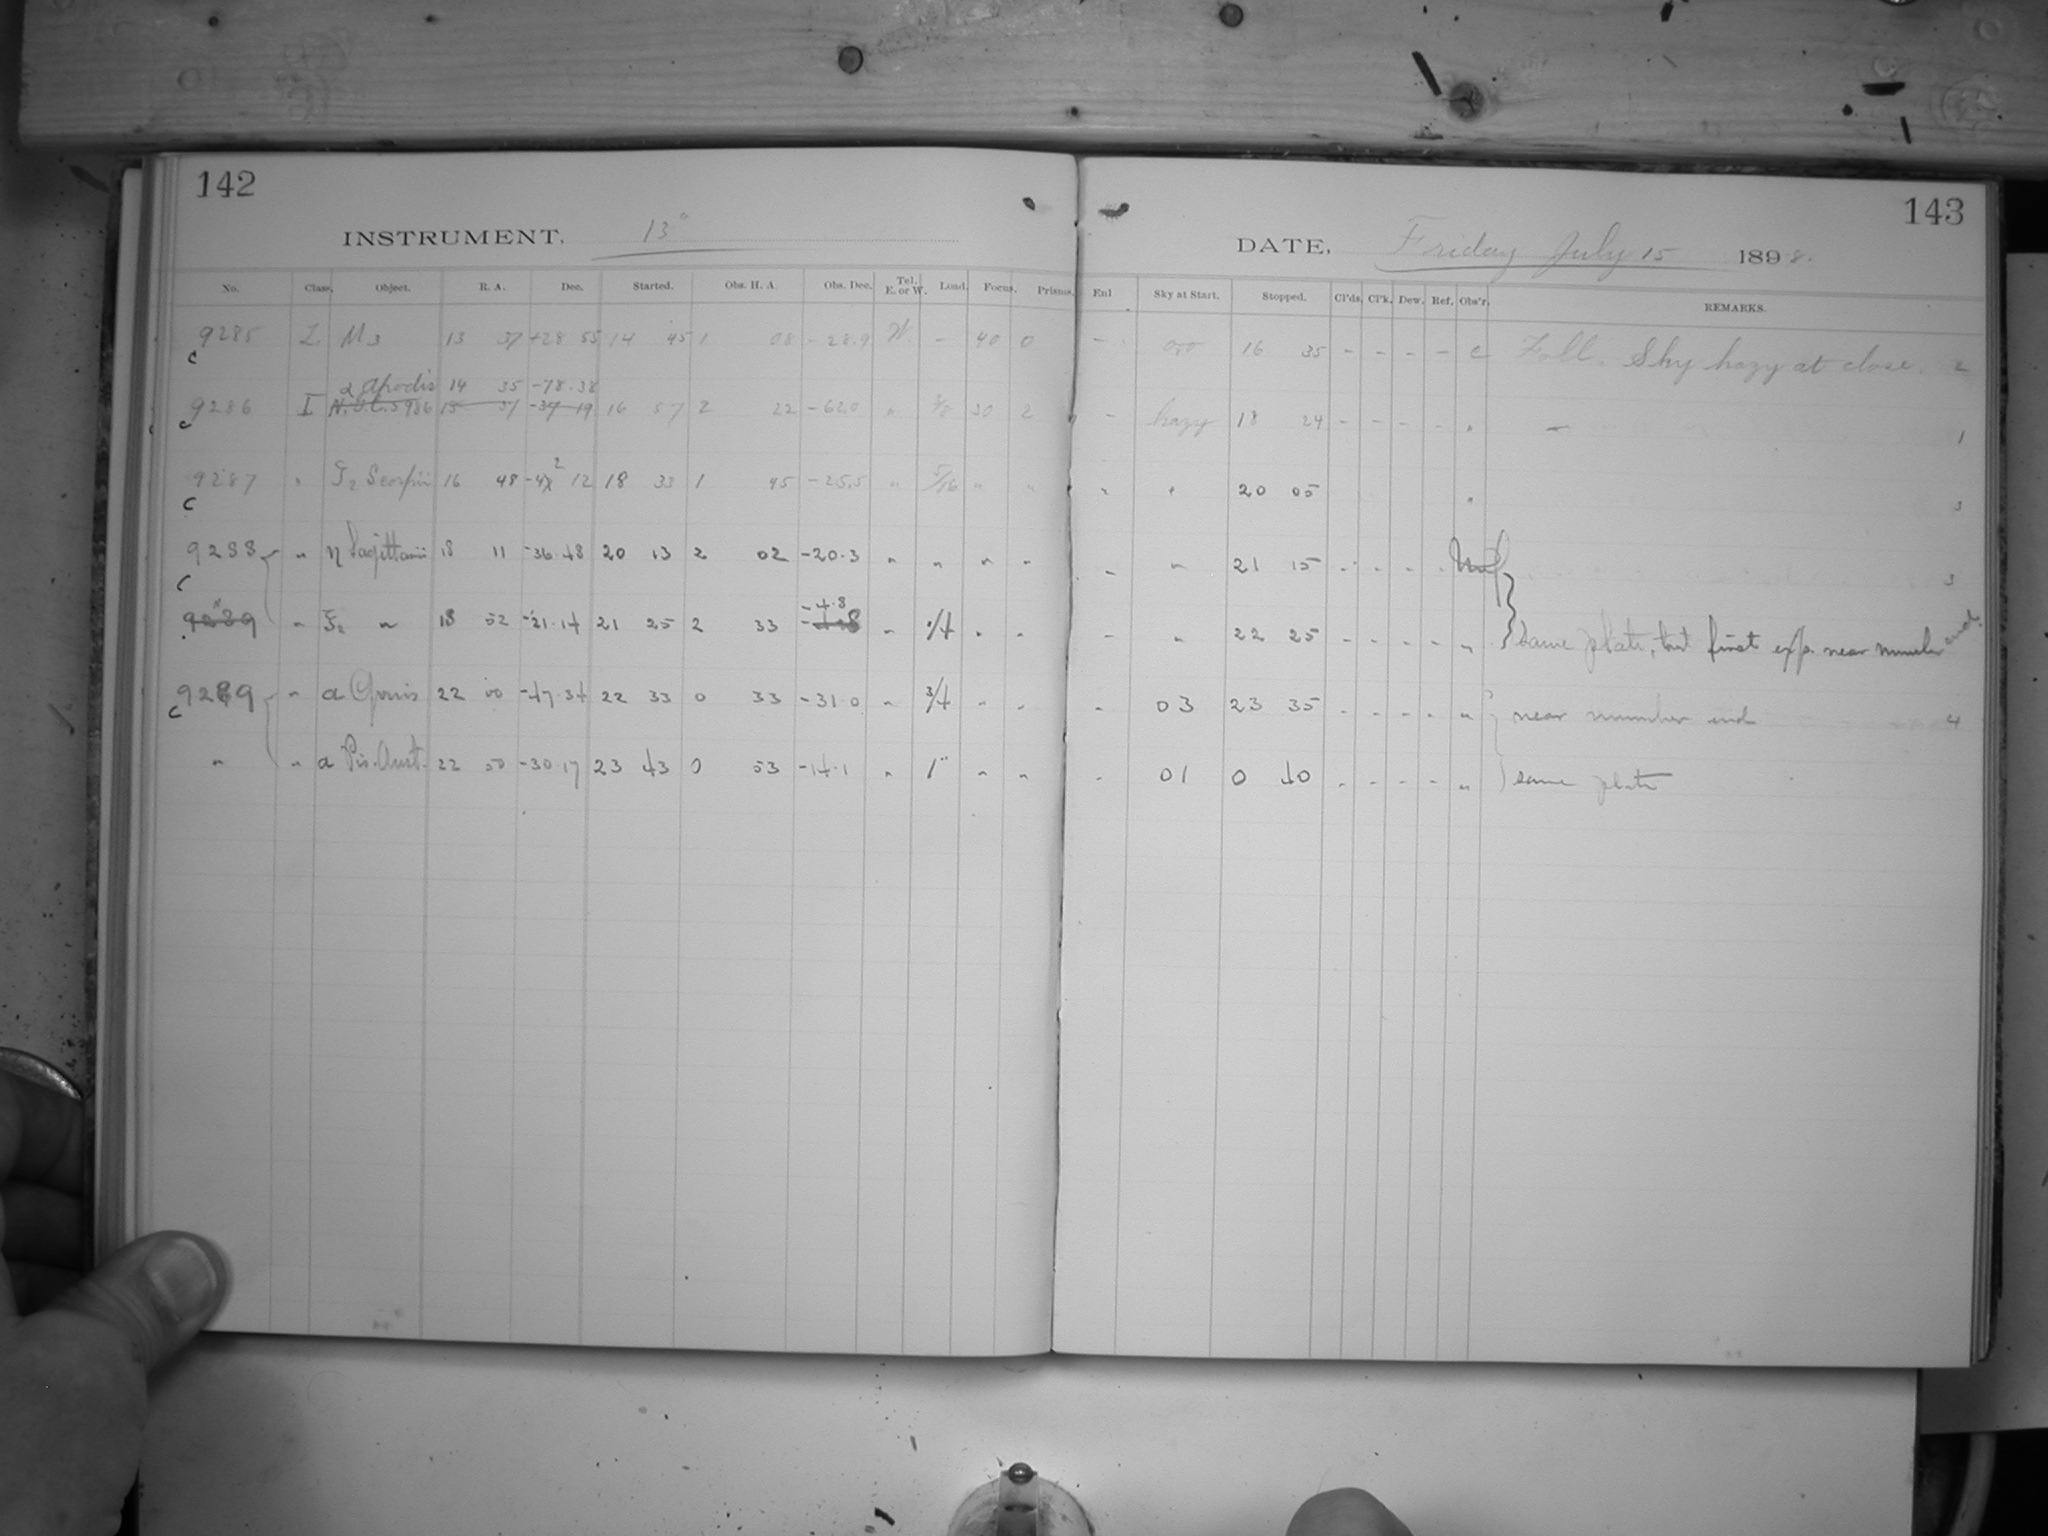 142
INSTRUMENT, 13"
No. Class. Object. R. A. Dec. Started. Obs. H. A. Obs. Dec. Tel. E. or W. Load. Focus. Prisms.
9285 L M3 13 37 +28 55 14 45 1 08 -28.9 W. - 40 0
α Apodis 14 35 -78.38
9286 I N.G.C. 5986 15 37 -37 19 16 57 2 22 -62.0 " 3/8 30 2
9287 " ζ2 Scorpii 16 48 -42 12 18 33 1 45 -25.5 " 5/16 " "
9288 " η Sagittarii 18 11 -36.48 20 13 2 02 -20.3 " " " "
-4.8
9289 " ξ2 " 18 52 -21.14 21 25 2 33 -4.8 " 1/4 " "
9289 " α Gruis 22 00 -47.34 22 33 0 33 -31.0 " 3/4 " "
" " α Pis. Aust. 22 50 -30.17 23 43 0 53 -14.1 " 1" " "
143
DATE, Friday July 15 1898.
Enl Sky at Start. Stopped. Cl'ds. Cl'k. Dew. Ref. Obs'r. REMARKS.
- 16 35 - - - - c Foll. Sky hazy at close. 2
- hazy 18 24 - - - - " - 1
" " 20 05 " 3
- " 21 15 - - - - 3
" 22 25 - - - - " same plate, but first exp. near number end.
- 03 23 35 - - - - " near number end 4
- 01 0 40 - - - - " same plate